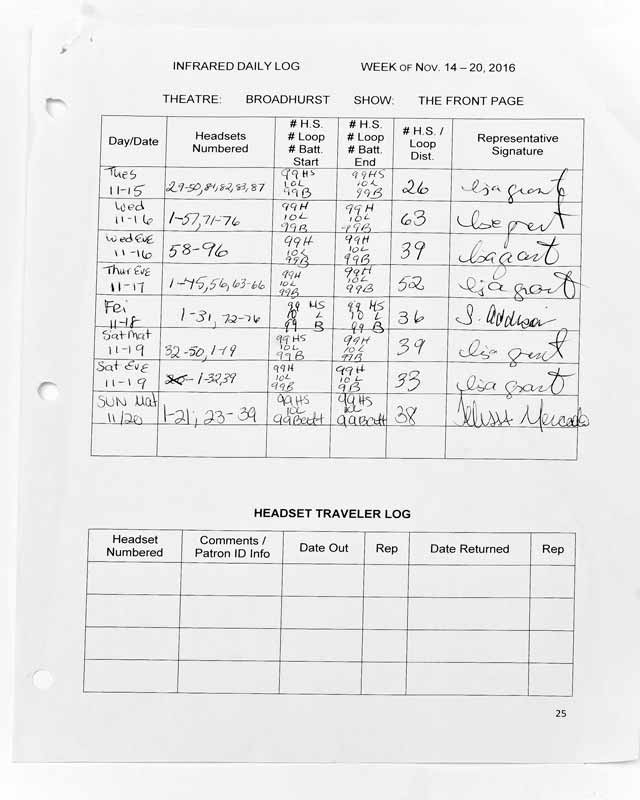 INFRARED DAILY LOG WEEK OF NOV. 14 – 20, 2016
THEATRE: BROADHURST SHOW: THE FRONT PAGE
Day/Date Headsets Numbered # H.S. # Loop # Batt. Start # H.S. # Loop # Batt. End # H.S. / Loop Dist. Representative Signature
Tues 11-15 29-50, 81, 82, 83, 87 99HS 10L 99B 99HS 10L 99B 26
Wed 11-16 1-57, 71-76 99H 10L 99B 99H 10L 99B 63
Wed Eve 11-16 58-96 99H 10L 99B 99H 10L 99B 39
Thur Eve 11-17 1-45, 56, 63-66 99H 10L 99B 99H 10L 99B 52
Fri 11-18 1-31, 72-76 99 HS 10 L 99 B 99 HS 10 L 99 B 36
Sat Mat 11-19 32-50, 1-19 99HS 10L 99B 99H 10L 99B 39
Sat Eve 11-19 1-32, 39 99H 10L 99B 99H 10L 99B 33
SUN Mat 11/20 1-21; 23-39 99HS 10L 99Batt 99HS 10L 99Batt 38 Mercado
HEADSET TRAVELER LOG
Headset Numbered Comments / Patron ID Info Date Out Rep Date Returned Rep
25